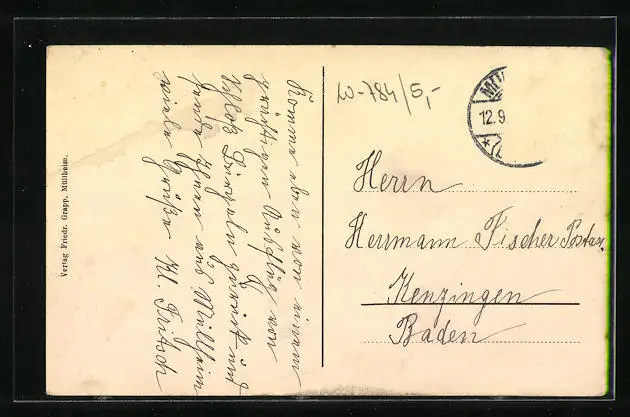 Komme eben von einem
kräftigen Ausflug von
Schloß Bürgeln zurück und
sende Ihnen aus Müllheim
viele Grüße W. Fritsch
W-784/5,-
MÜ
12.9
Herrn
Herrmann Fischer Postar.
Kenzingen
Baden
Verlag Friedr. Grapp, Müllheim.